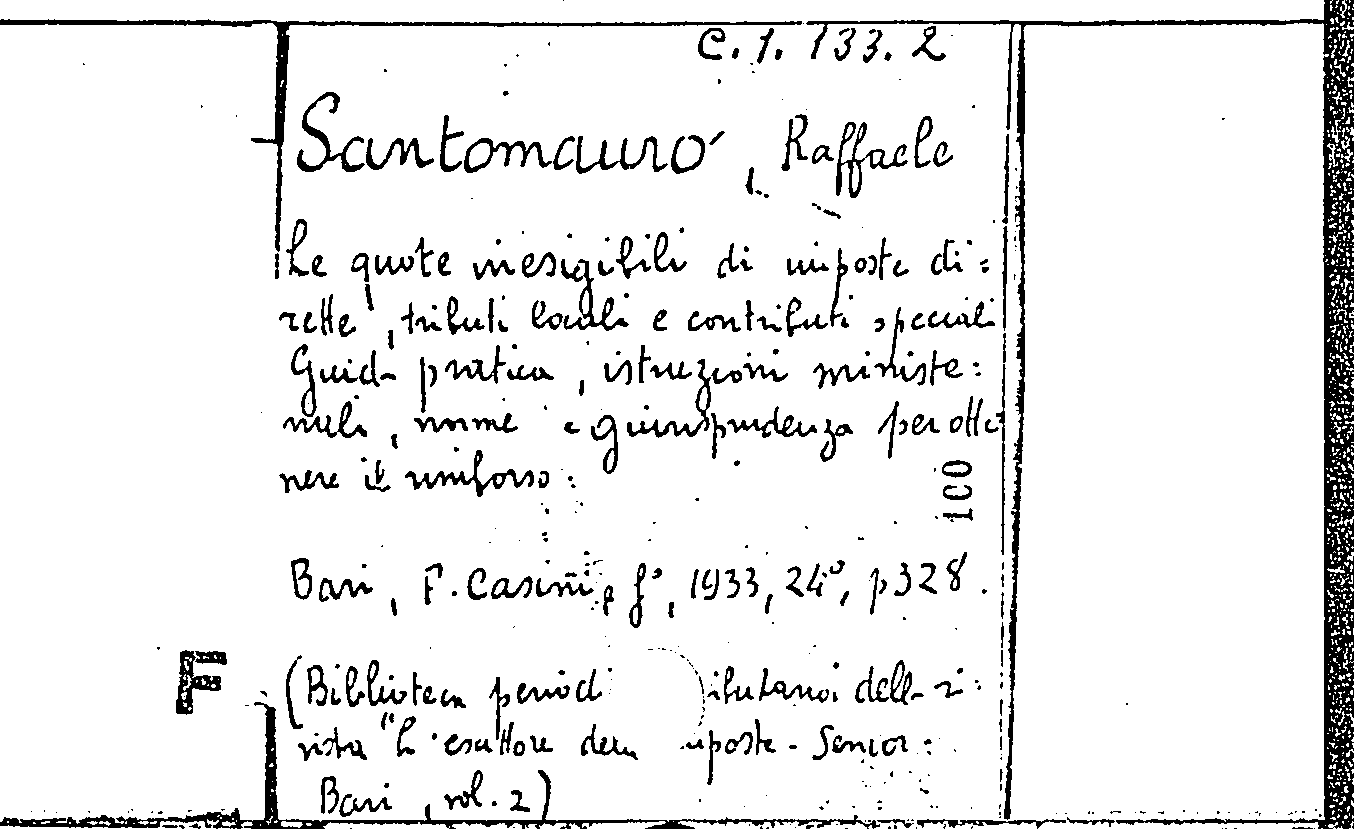 C.1.133.2
Santomauro, Raffaele
Le quote inesigibili di imposte di=
rette, tributi locali e contributi speciali
Guida pratica, istruzioni ministe=
riali, norme e giurisprudenza per otte=
nere il rimborso:
100
Bari, F. Casini e f°, 1933, 24°, p 328.
F
(Biblioteca periodi ributaria della ri=
vista "L'esattore delle imposte - Senior:
Bari, vol. 2)